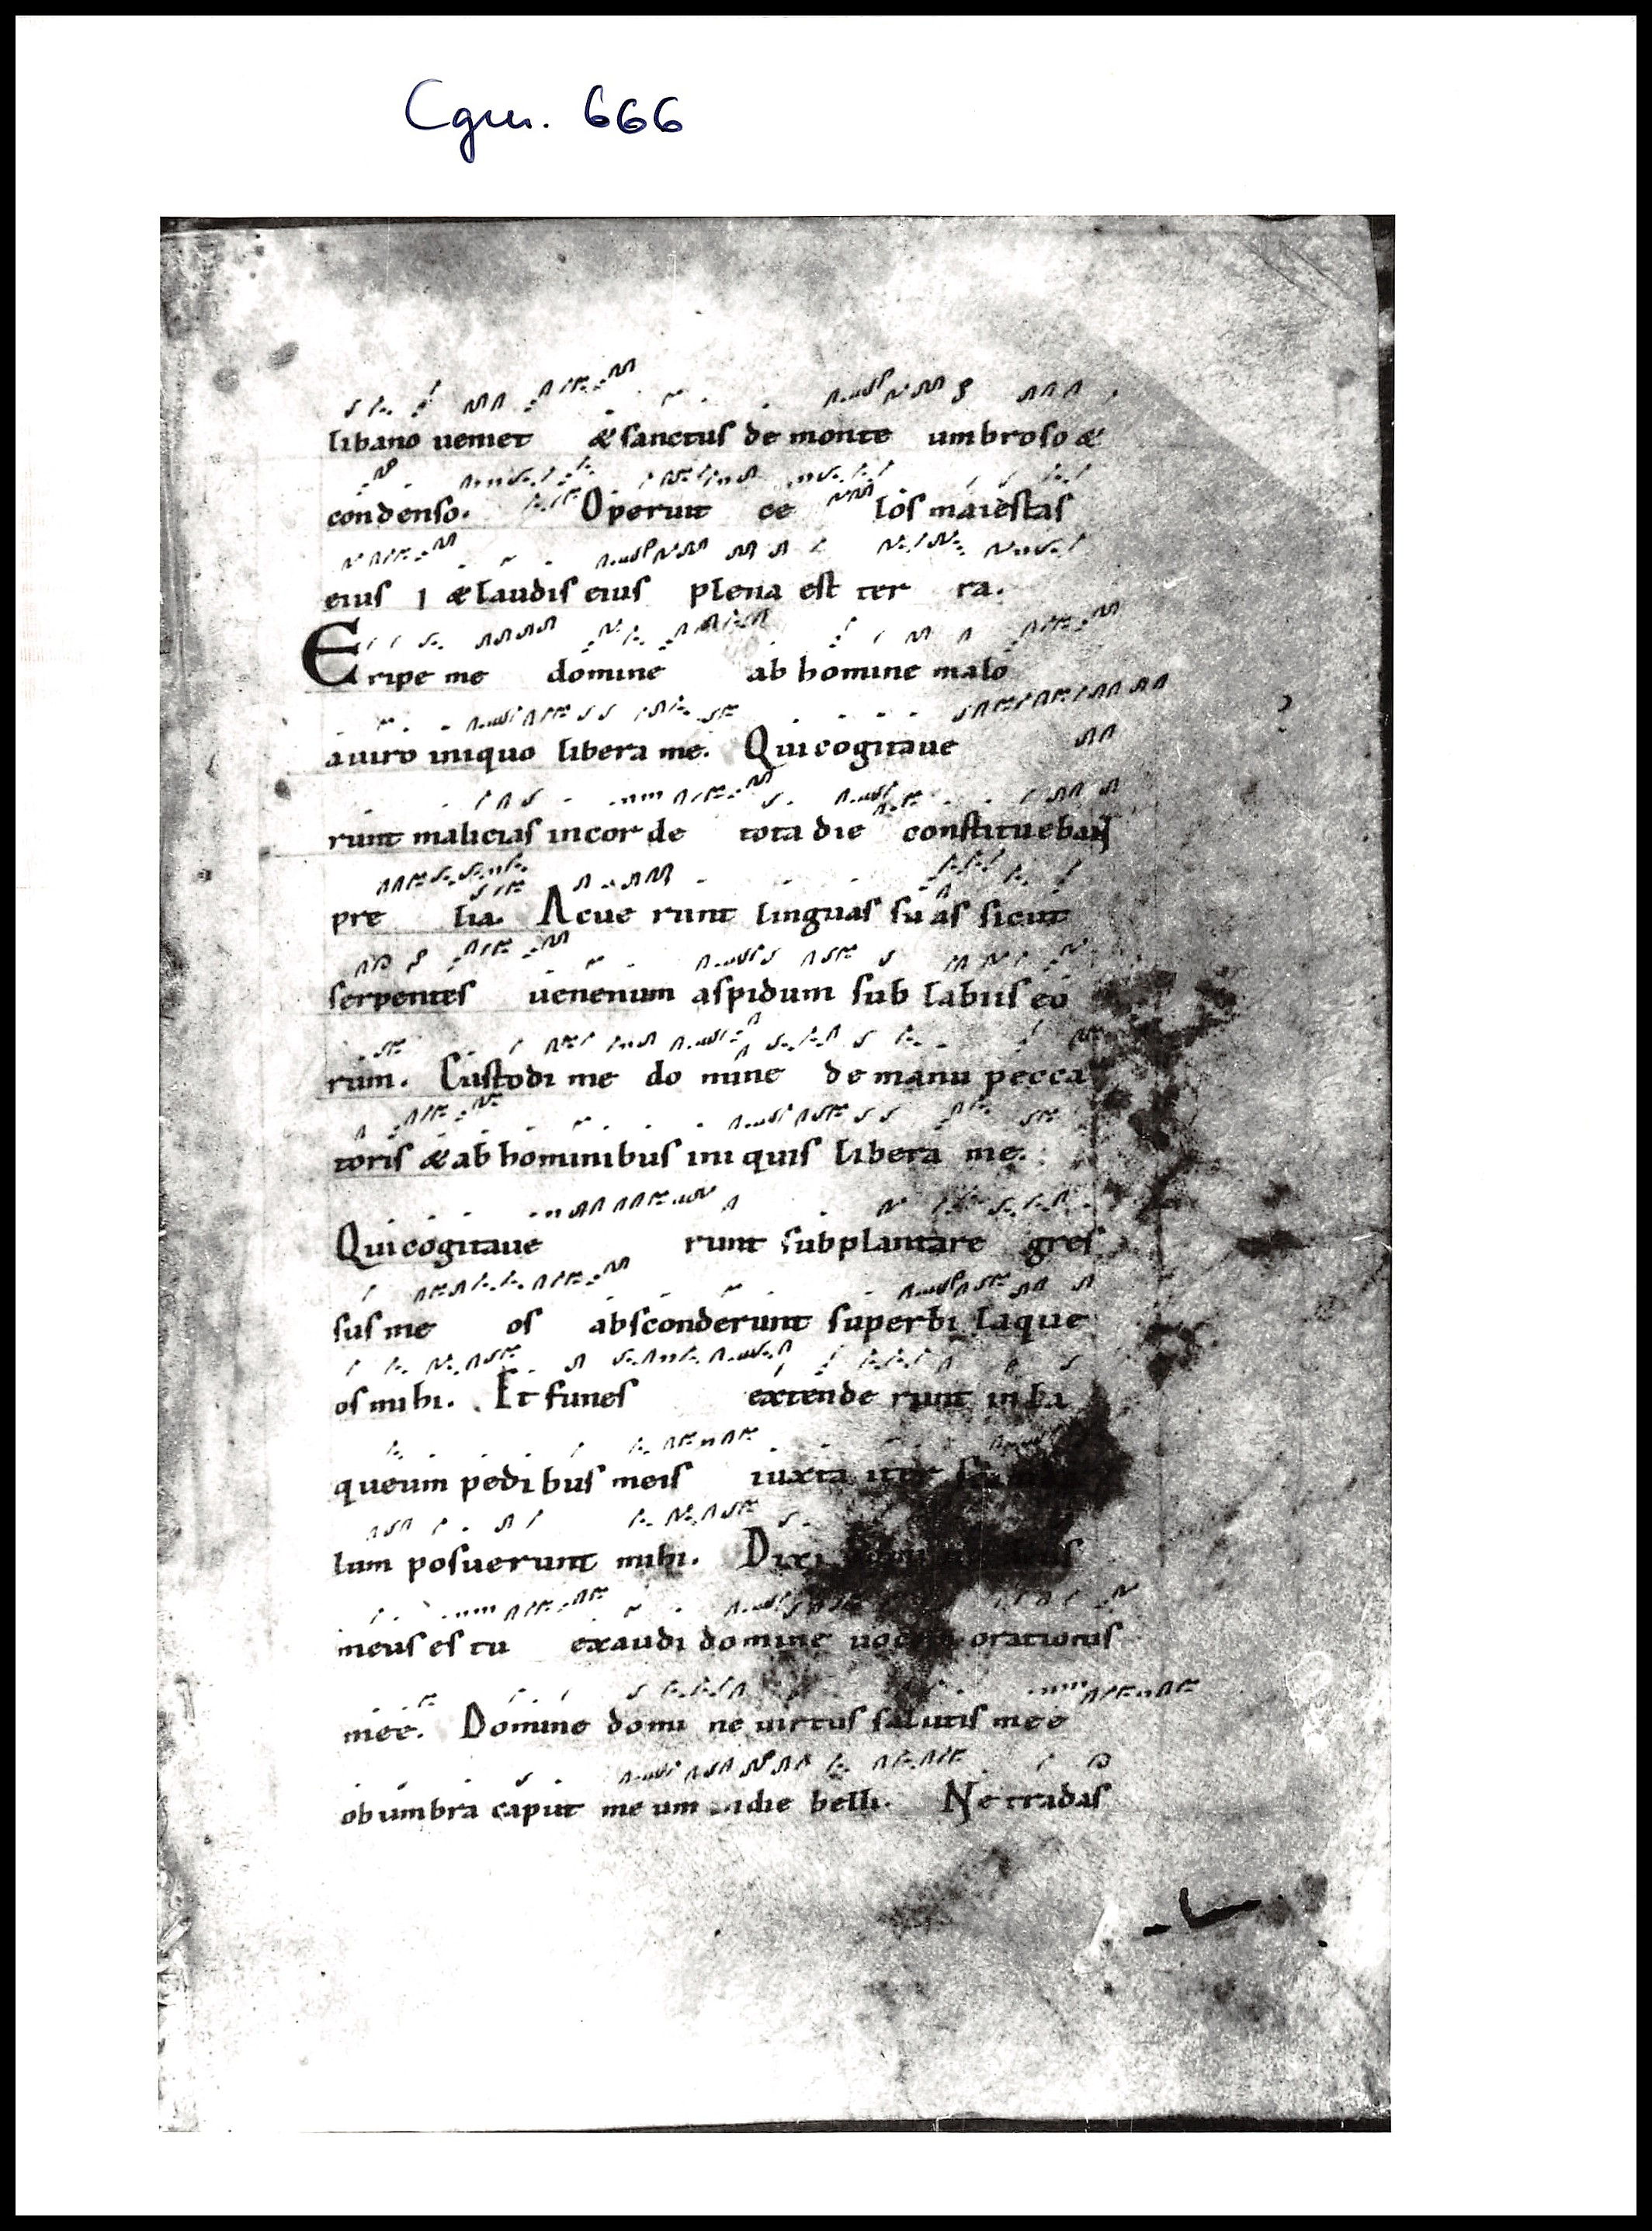 Cgm. 666
libano ueniet & sanctus de monte umbroso &
condenso. Operuit ce los maiestas
eius & laudis eius plena est ter ra.
Eripe me domine ab homine malo
auiro iniquo libera me. Qui cogitaue
runt malicias incorde tota die constituebant
pre lia. Acue runt linguas suas sicut
serpentes uenenum aspidum sub labiis eo
rum. Custodi me do mine de manu pecca
toris & ab hominibus ini quis libera me.
Qui cogitaue runt subplantare gres
sus me os absconderunt superbi laque
os mihi. Et funes extende runt in la
queum pedi bus meis iuxta iter
lum posuerunt mihi. Dixi
meus es tu exaudi domine orationis
meę. Domine domi ne uirtus salutis meę
obumbra caput me um die belli. Ne tradas